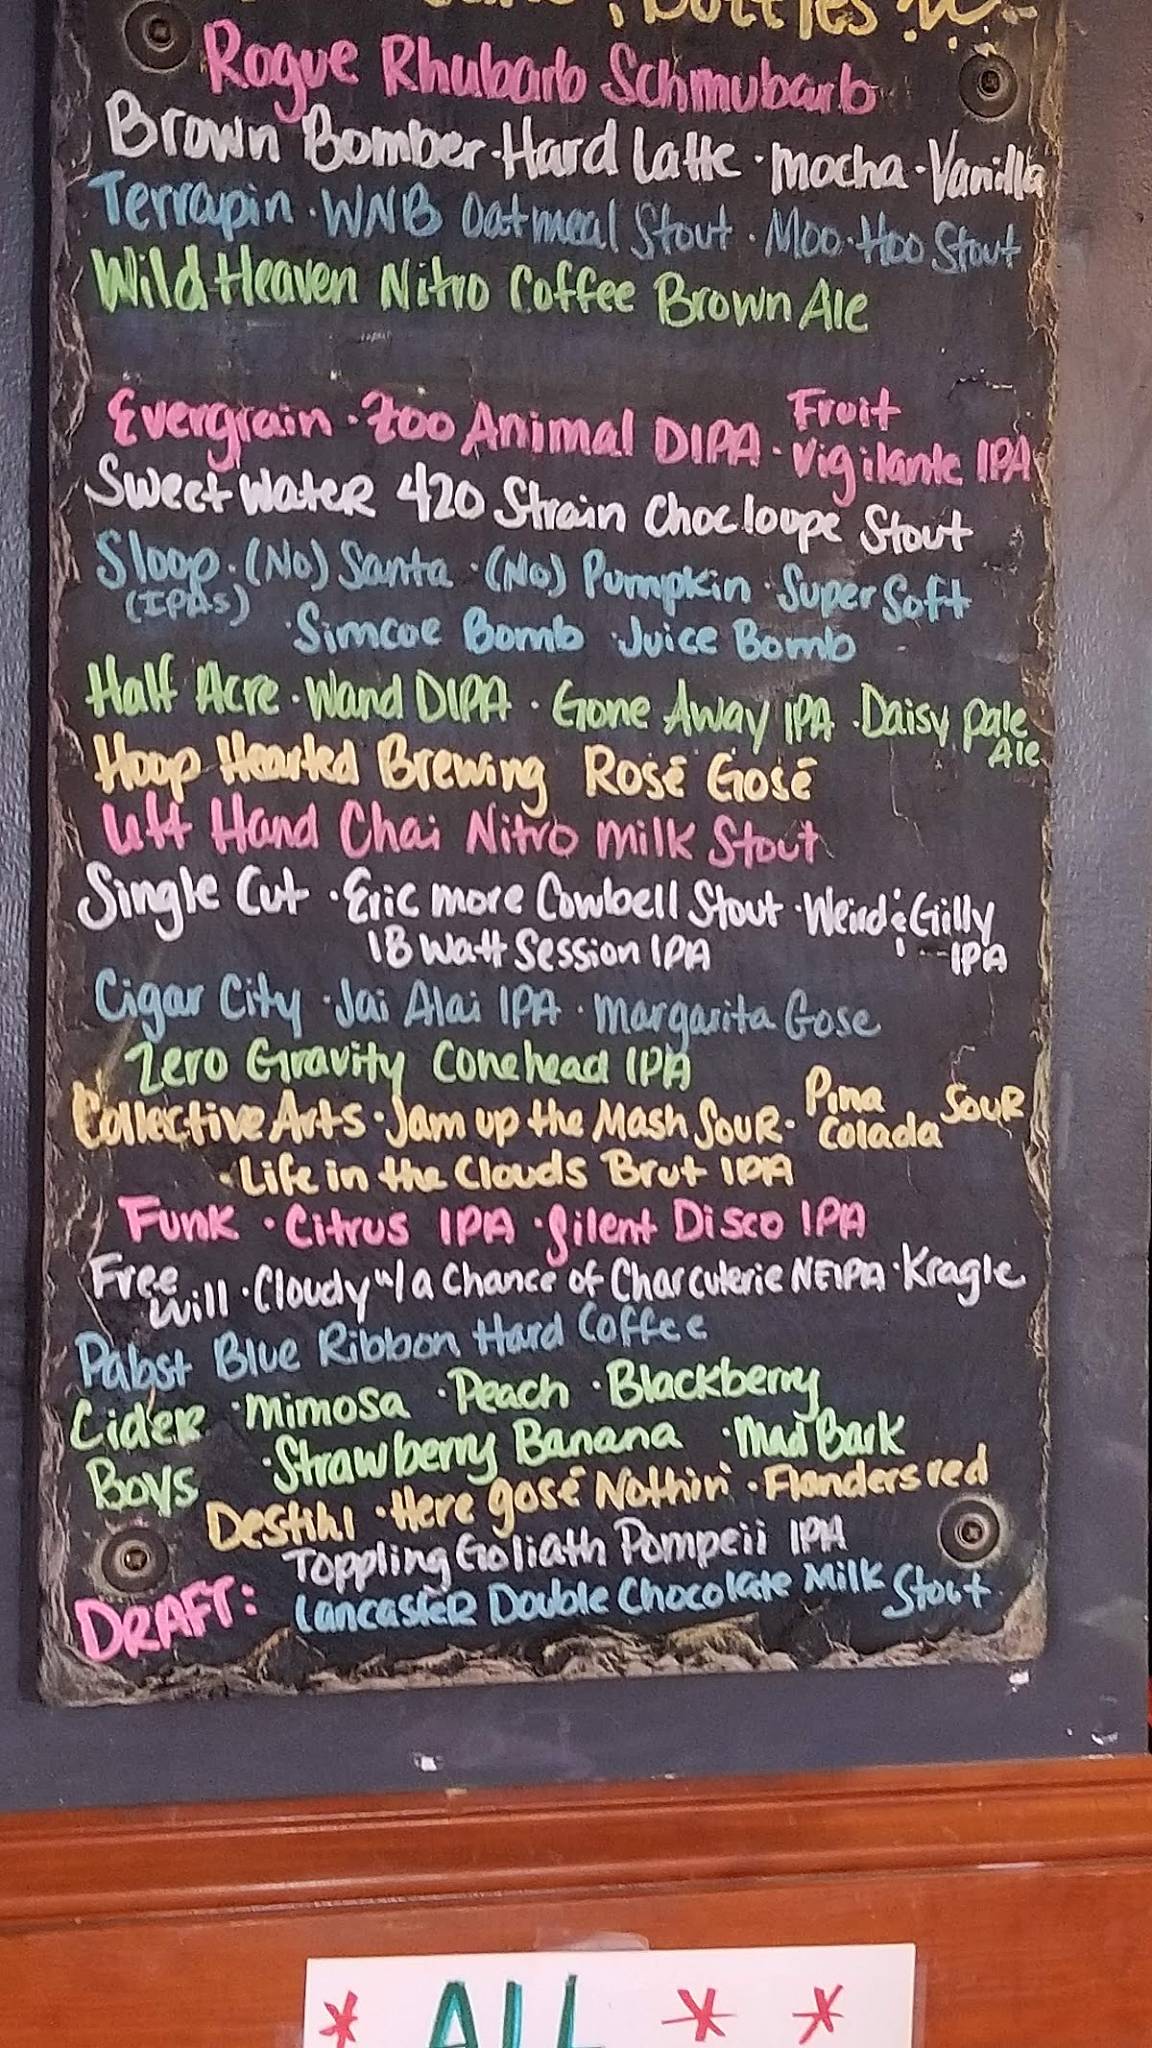 Bottles
Rogue Rhubarb Schmubarb
Brown Bomber · Hard Latte · Mocha · Vanilla
Terrapin · WNB Oatmeal Stout · Moo-Hoo Stout
Wild Heaven Nitro Coffee Brown Ale
Evergrain · Zoo Animal DIPA · Fruit Vigilante IPA
SweetWater 420 Strain Chocloupe Stout
Sloop · (No) Santa · (No) Pumpkin · Super Soft
(IPAs) · Simcoe Bomb · Juice Bomb
Half Acre · Wand DIPA · Gone Away IPA · Daisy Pale Ale
Hoop Hearted Brewing Rosé Gosé
Left Hand Chai Nitro Milk Stout
Single Cut · Eric More Cowbell Stout · Weird & Gilly IPA
18 Watt Session IPA
Cigar City · Jai Alai IPA · Margarita Gose
Zero Gravity Conehead IPA
Collective Arts · Jam up the Mash Sour · Pina Colada Sour
· Life in the Clouds Brut IPA
Funk · Citrus IPA · Silent Disco IPA
Free Will · Cloudy w/ a Chance of Charcuterie NEIPA · Kragle
Pabst Blue Ribbon Hard Coffee
Cider · Mimosa · Peach · Blackberry
Boys · Strawberry Banana · Mad Bark
Destihl · Here gosé Nothin' · Flanders red
Toppling Goliath Pompeii IPA
DRAFT: Lancaster Double Chocolate Milk Stout
* ALL * *